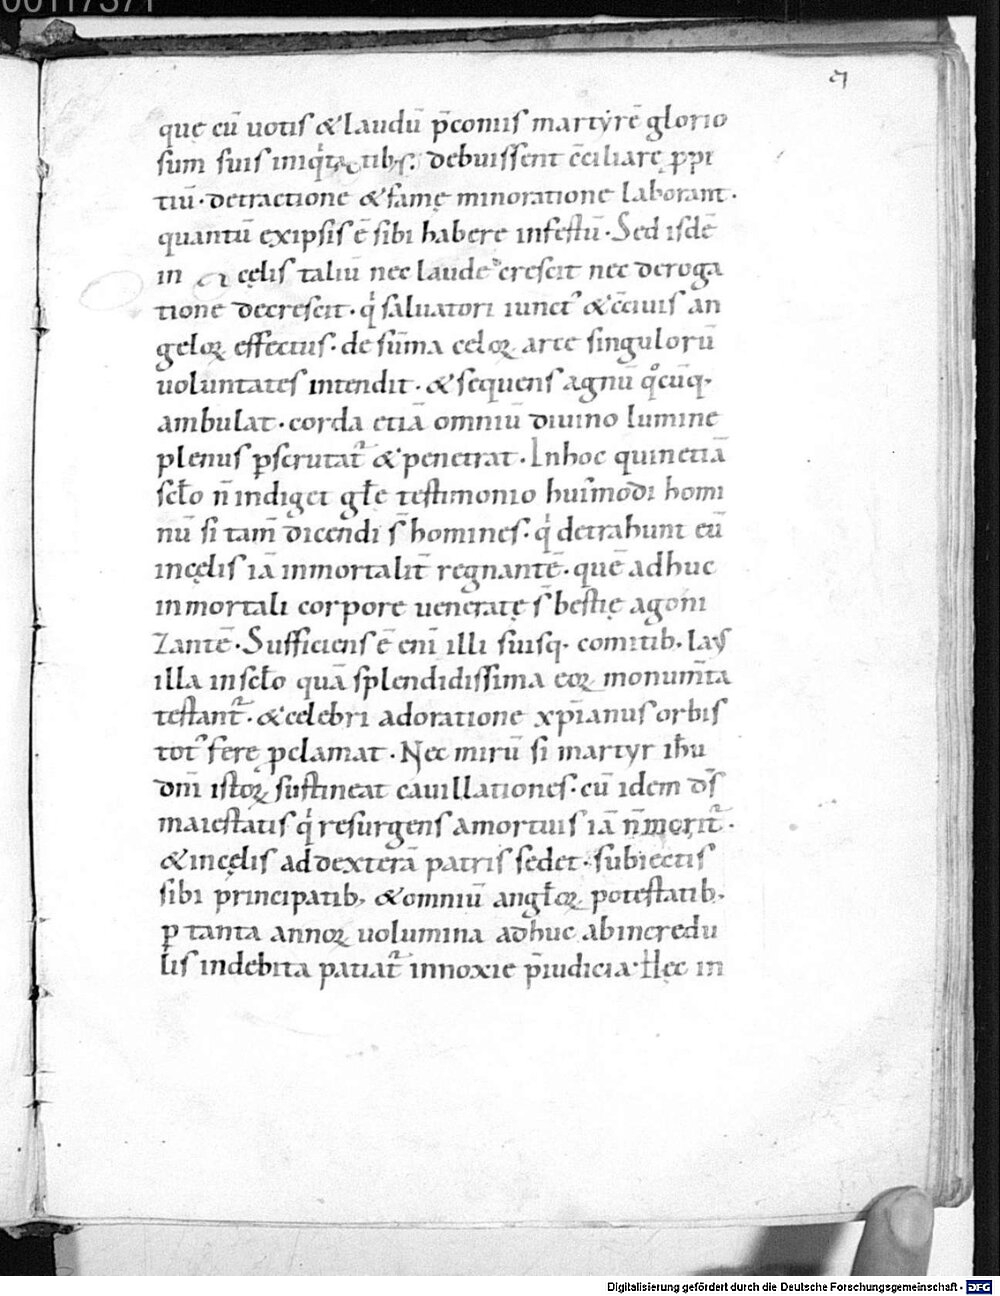 00117371
ꝯ
quę cū uotis & laudū p̄coniis martyrē glorio
sum suis iniq̇tatibꝫ. debuissent c̄ciliare ꝓpi
tiū · detractione & famę minoratione laborant .
quantū ex ipsis ē sibi habere infestū · Sed isdē
in cęlis taliū nec laude crescit nec deroga
tione decrescit · q̇ saluatori iunct᾽ & c̄ciuis an
geloꝝ effectus · de sūma celoꝝ arce singulorū
uoluntates intendit · & sequens agnū q̊cūq·
ambulat · corda etiā omniū diuino lumine
plenus ꝑscrutat᷑ & penetrat · In hoc quin etiā
sc̄lo n̄ indiget gl̄e testimonio hui᾽modi homi
nū si tam̄ dicendi s̄ homines · q̇ detrahunt eū
in cęlis iā inmortalit̄ regnantē · quē adhuc
in mortali corpore uenerate s̄ bestię agoni
zantē · Sufficiens ē eni illi suisq· comitib· laus
illa in sc̄lo quā splendidissima eoꝝ monum̄ta
testant᷑ · & celebri adoratione xp̄ianus orbis
tot᾽ fere ꝓclamat · Nec mirū si martyr ih̄u
dn̄i istoꝝ sustineat cauillationes · cū idem ds̄
maiestatis q̇ resurgens a mortuis iā n̄ morit᷑ ·
& in cęlis ad dexterā patris sedet · subiectis
sibi principatib, & omniū angl̄oꝝ potestatib,
ꝑ tanta annoꝝ uolumina adhuc ab incredu
lis indebita patiat᷑ innoxie p̄iudicia · Hęc in
Digitalisierung gefördert durch die Deutsche Forschungsgemeinschaft - DFG